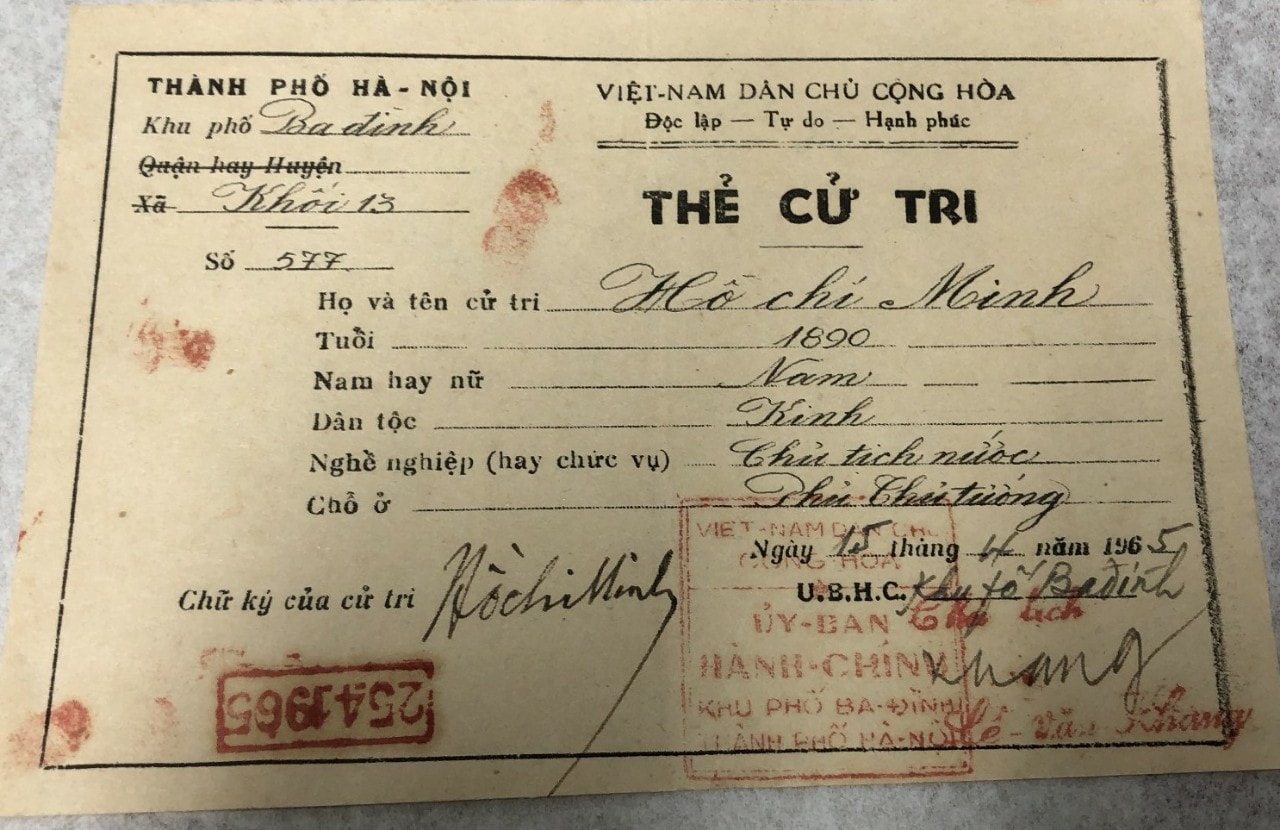 THÀNH PHỐ HÀ-NỘI
Khu phố Ba đình
Quận hay Huyện
Xã Khối 13
Số 577
VIỆT-NAM DÂN CHỦ CỘNG HÒA
Độc lập — Tự do — Hạnh phúc
THẺ CỬ TRI
Họ và tên cử tri Hồ chí Minh
Tuổi 1890
Nam hay nữ Nam
Dân tộc Kinh
Nghề nghiệp (hay chức vụ) Chủ tịch nước
Chỗ ở Phủ Thủ tướng
Ngày 15 tháng 4 năm 1965
U.B.H.C. Khu fố Ba đình
Chữ ký của cử tri Hồ chí Minh
VIỆT-NAM DÂN CHỦ
CỘNG HÒA
ỦY-BAN
HÀNH-CHÍNH
KHU PHỐ BA-ĐÌNH
THÀNH PHỐ HÀ-NỘI
Lê-Văn Khang
2541965